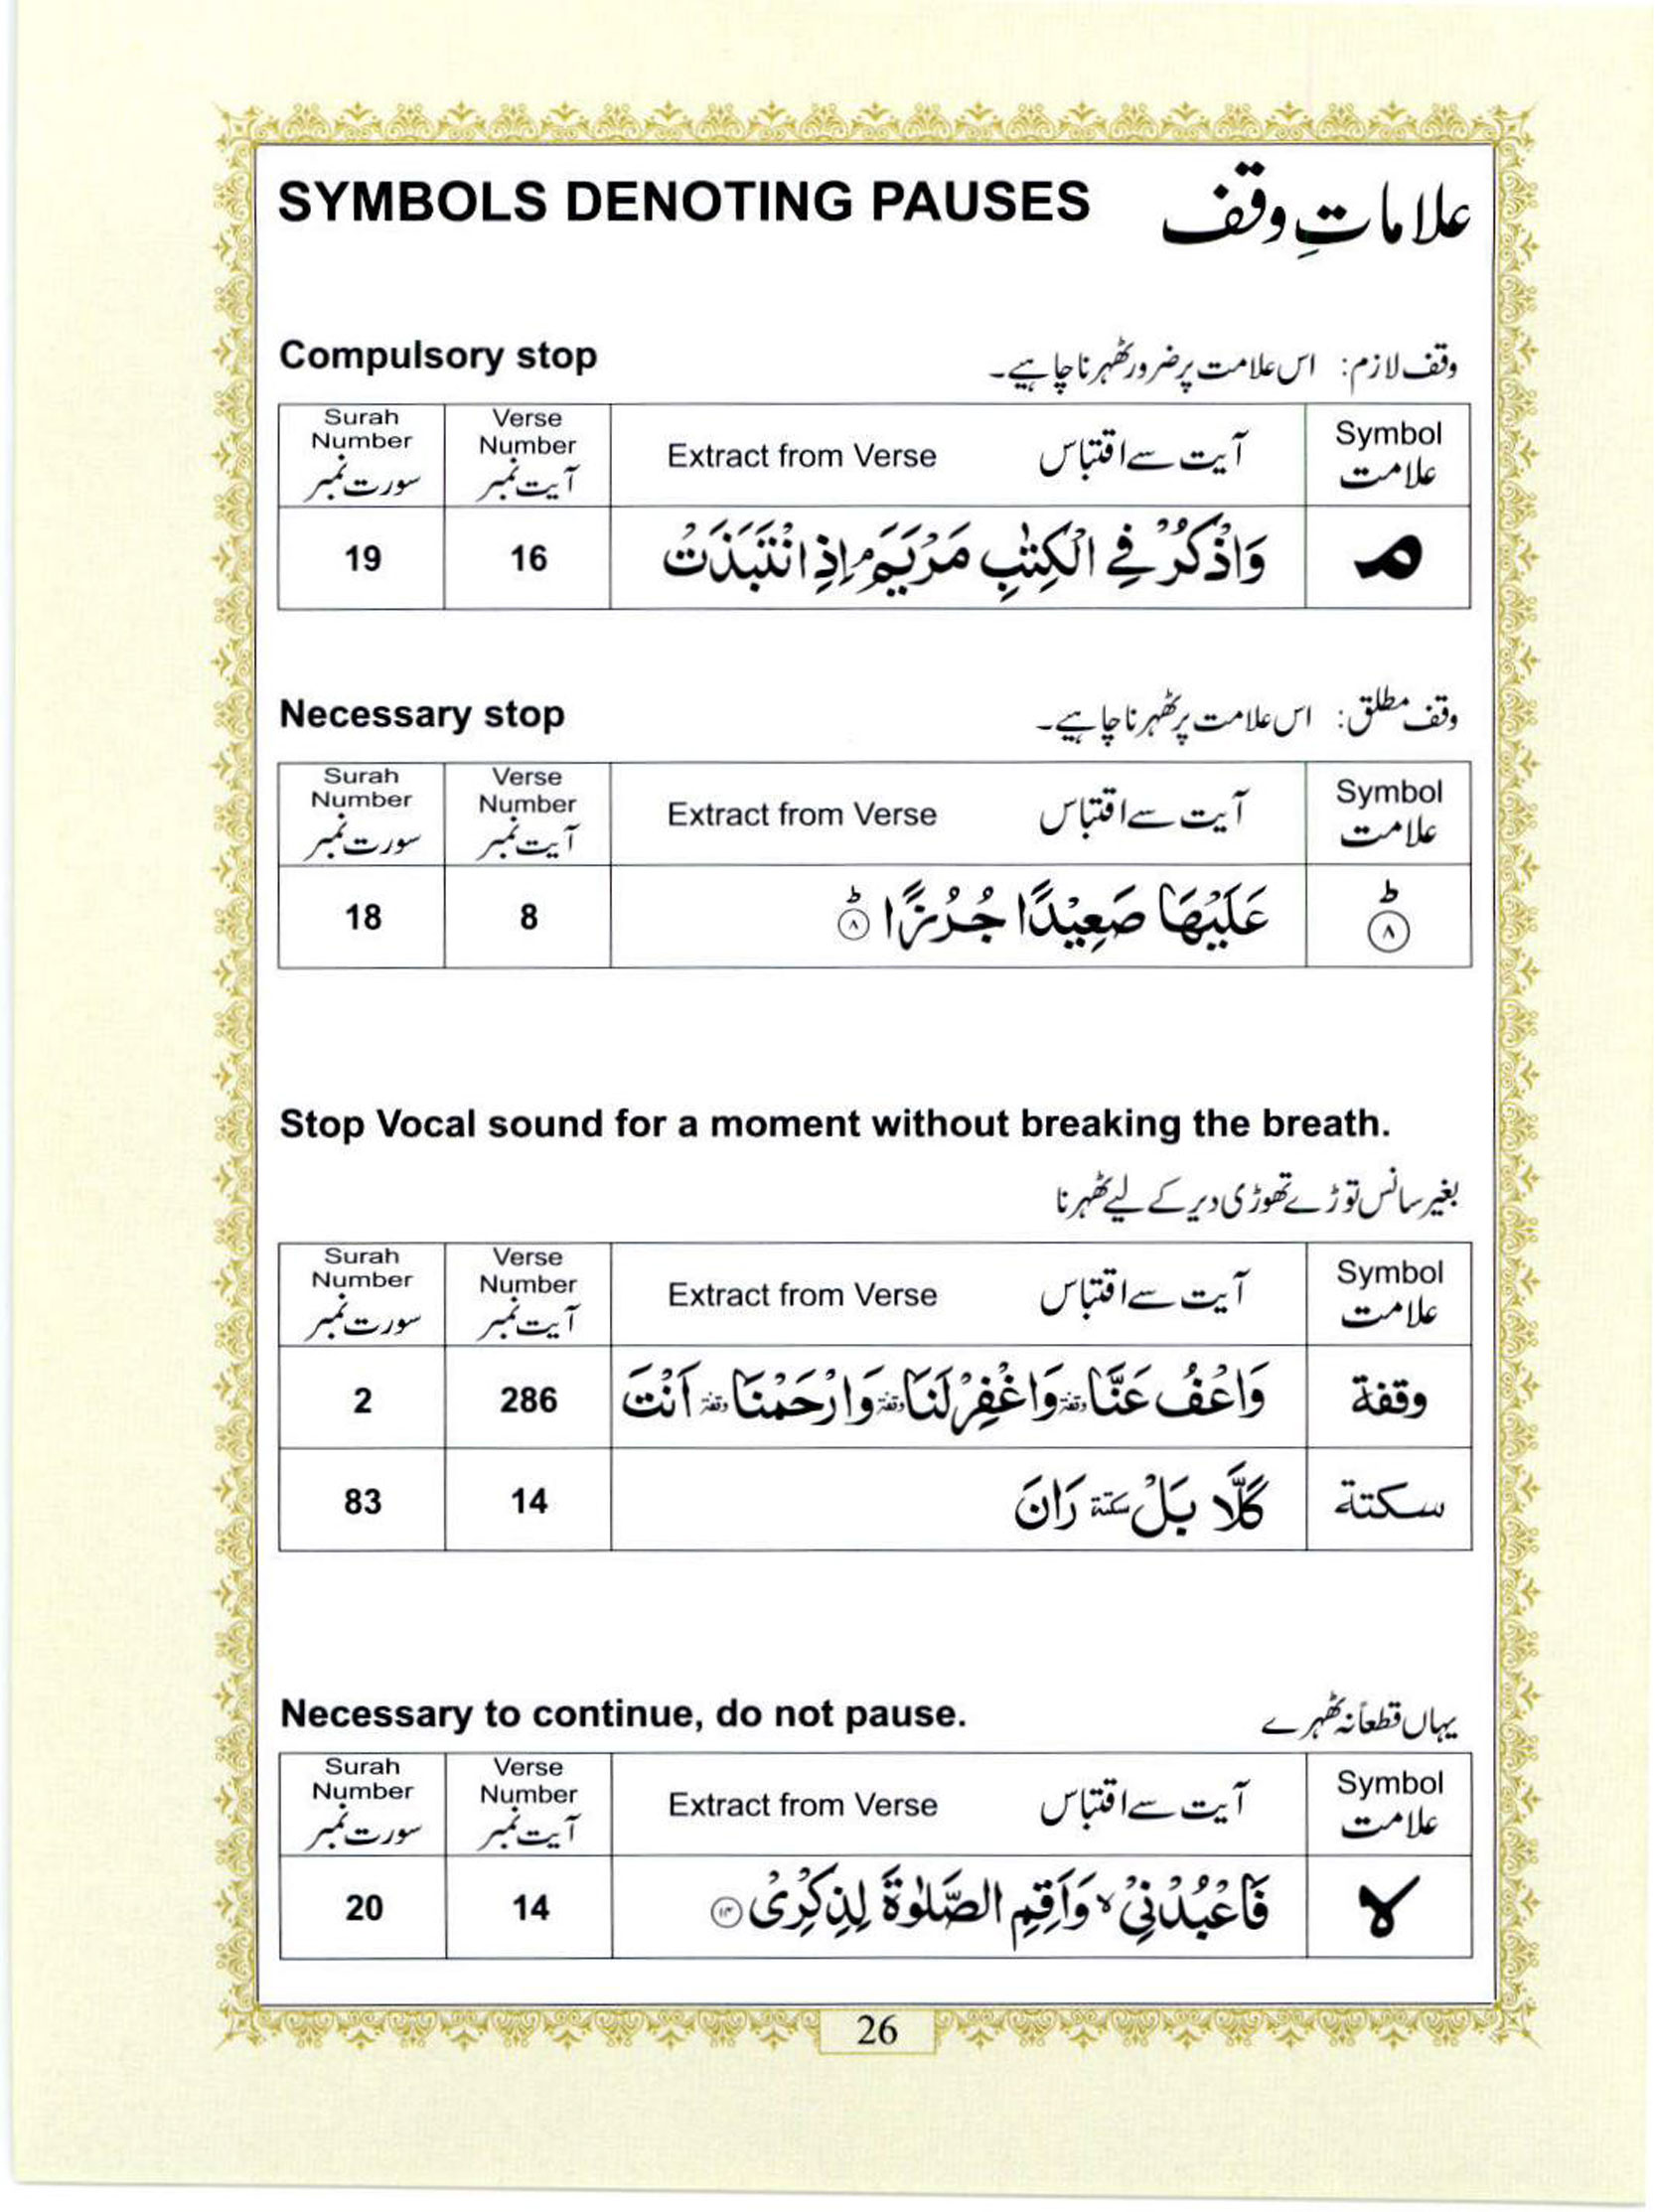 SYMBOLS DENOTING PAUSES علاماتِ وقف
Compulsory stop وقف لازم: اس علامت پر ضرور ٹھہرنا چاہیے۔
Surah Number سورت نمبر Verse Number آیت نمبر Extract from Verse آیت سے اقتباس Symbol علامت
19 16 وَاذْكُرْ فِي الْكِتٰبِ مَرْيَمَ ۘ اِذِ انْتَبَذَتْ مـ
Necessary stop وقف مطلق: اس علامت پر ٹھہرنا چاہیے۔
Surah Number سورت نمبر Verse Number آیت نمبر Extract from Verse آیت سے اقتباس Symbol علامت
18 8 عَلَيْهَا صَعِيْدًا جُرُزًا ؕ۸ ؕ۸
Stop Vocal sound for a moment without breaking the breath.
بغیر سانس توڑے تھوڑی دیر کے لیے ٹھہرنا
Surah Number سورت نمبر Verse Number آیت نمبر Extract from Verse آیت سے اقتباس Symbol علامت
2 286 وَاعْفُ عَنَّا وقفة وَاغْفِرْ لَنَا وقفة وَارْحَمْنَا وقفة اَنْتَ وقفة
83 14 كَلَّا بَلْ سكتة رَانَ سكتة
Necessary to continue, do not pause. یہاں قطعاً نہ ٹھہرے
Surah Number سورت نمبر Verse Number آیت نمبر Extract from Verse آیت سے اقتباس Symbol علامت
20 14 فَاعْبُدْنِيْ ۙ وَاَقِمِ الصَّلٰوةَ لِذِكْرِيْ ۱۴ لا
26